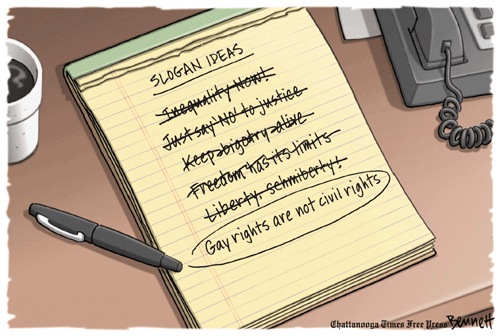 SLOGAN IDEAS
Inequality Now!
Just say NO to justice
Keep bigotry alive
Freedom has its limits
Liberty, schmiberty!
Gay rights are not civil rights
Chattanooga Times Free Press Bennett